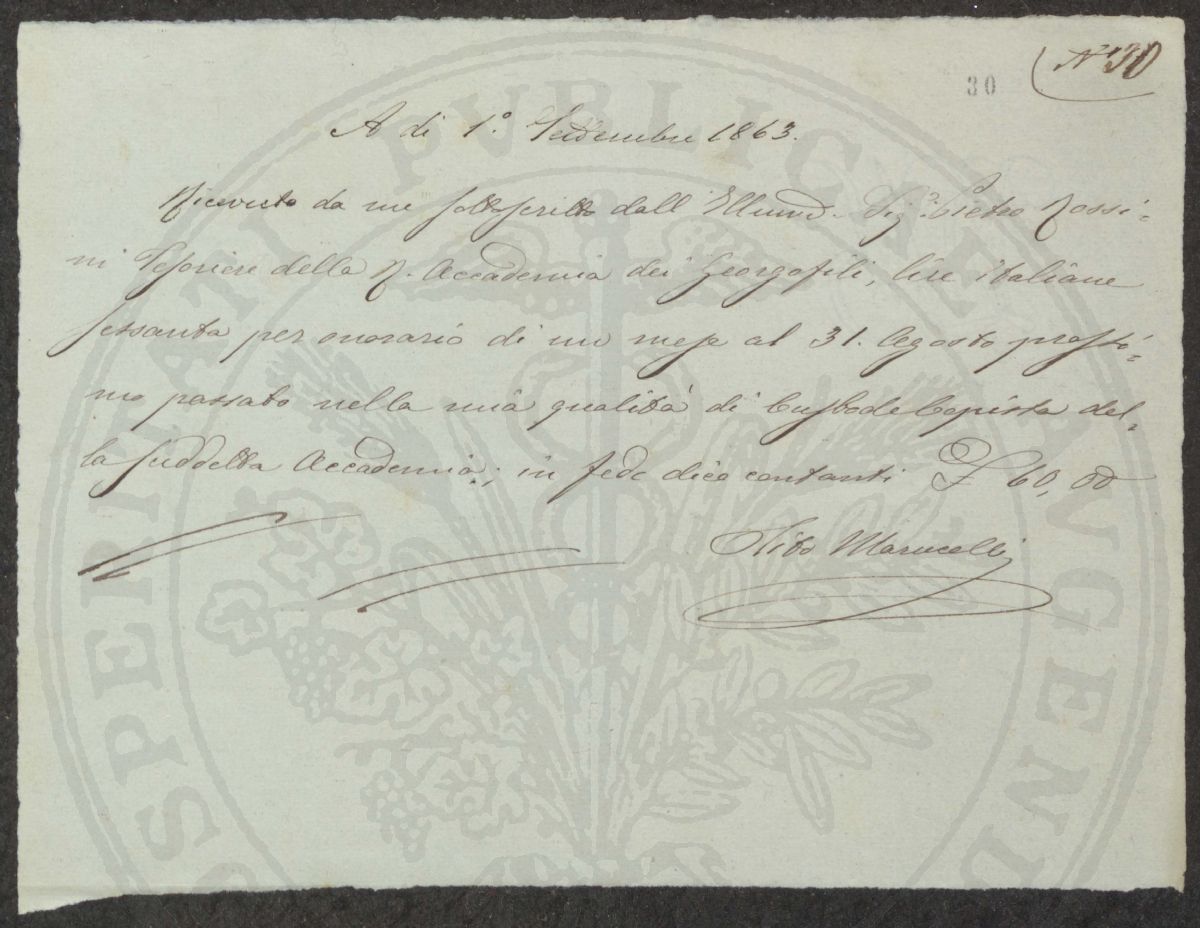 N° 30
30
A di 1.° Settembre 1863.
Ricevuto da me sottoscritto dall' Illmo. Sig.r Pietro Rossi=
ni Tesoriere della R. Accademia dei Georgofili, lire italiane
sessanta per onorario di un mese al 31. Agosto prossi=
mo passato nella mia qualità di Custode Copista del=
la suddetta Accademia; in fede dico contanti £ 60,00
Marucelli
PROSPERITATI PVBLICAE AVGENDAE